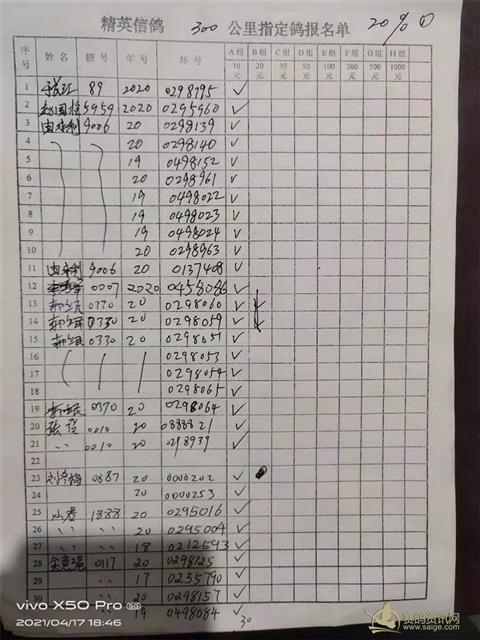 精英信鸽 300 公里指定鸽报名单 20% ①
序号 姓名 棚号 年号 环号 A组10元 B组20元 C组30元 D组50元 E组100元 F组200元 G组500元 H组1000元
1 89 2020 0298795 ✓
2 5959 2020 0295960 ✓
3 由永利 9006 20 0298139 ✓
4 20 0298140 ✓
5 19 0498152 ✓
6 20 0298961 ✓
7 19 0498022 ✓
8 19 0498023 ✓
9 19 0498024 ✓
10 20 0298963 ✓
11 由永利 9006 20 0137408 ✓
12 0007 2020 0458086 ✓
13 0330 20 0298060 ✓
14 0330 20 0298059 ✓
15 0330 20 0298051 ✓
16 0298053 ✓
17 0298054 ✓
18 0298065 ✓
19 0330 20 0298064 ✓
20 0010 20 0888821 ✓
21 〃 0010 20 0298939 ✓
22
23 0887 20 0000202 ✓
24 20 0000253 ✓
25 1888 20 0295016 ✓
26 〃 〃 20 0295004 ✓
27 〃 〃 18 0212593 ✓
28 0117 20 0298125 ✓
29 〃 17 0235790 ✓
30 〃 20 0298157 ✓
19 0498084 ✓
30
vivo X50 Pro
2021/04/17 18:46
赛鸽资讯网
www.saige.com